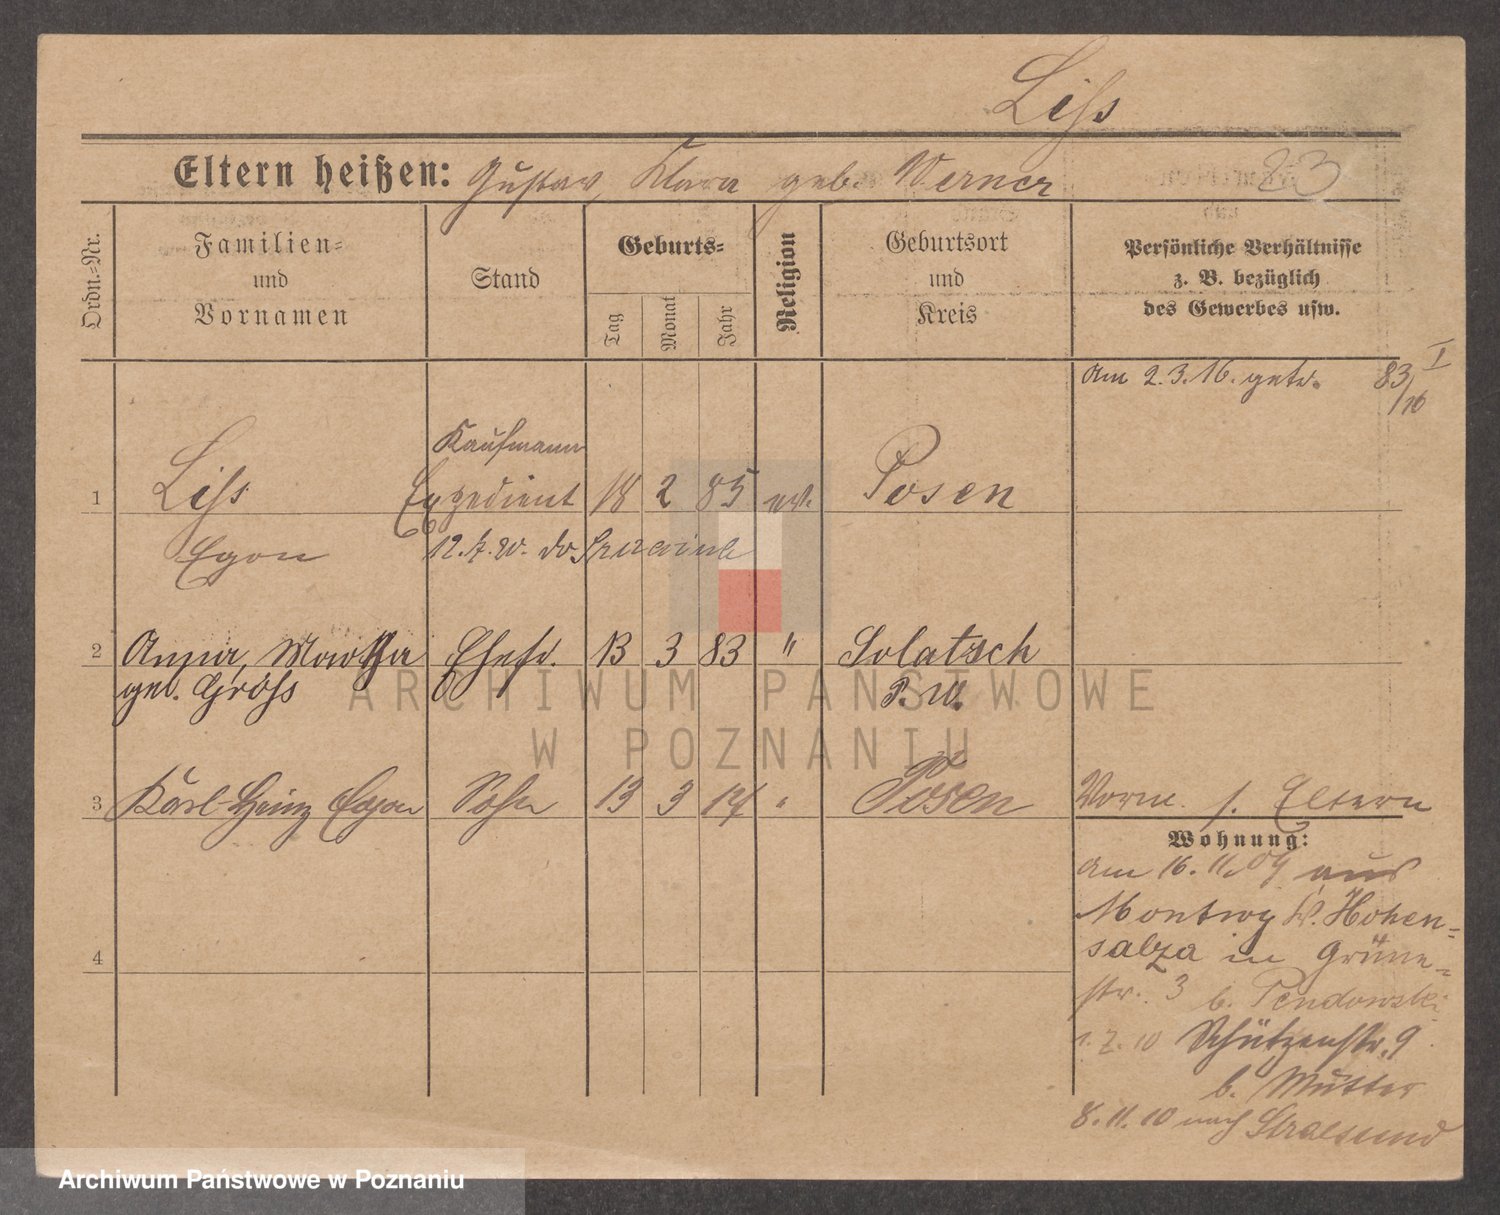 Liss
Eltern heißen: Gustav, Klara geb. Werner 23
Ordn.=Nr.
Familien=
und
Vornamen
Stand
Geburts=
Tag
Monat
Jahr
Religion
Geburtsort
und
Kreis
Persönliche Verhältnisse
z. B. bezüglich
des Gewerbes usw.
am 2.3.16. getr. 83/16 I
Kaufmann
1 Liss Expedient 18 2 85 ev. Posen
Egon 12.7.20. do
2 Anna, Martha Ehefr. 13 3 83 " Solatsch
geb. Gross P. W.
3 Karl-Heinz Egon Sohn 13 3 14 " Posen
Vorm. s. Eltern
Wohnung:
am 16.11.09 aus
Montwy Kr. Hohen=
salza in Grüne=
str. 3 b. Pendowski
1.7.10 Schützenstr. 9
b. Mutter
8.11.10 nach Stralsund
4
ARCHIWUM PAŃSTWOWE
W POZNANIU
Archiwum Państwowe w Poznaniu